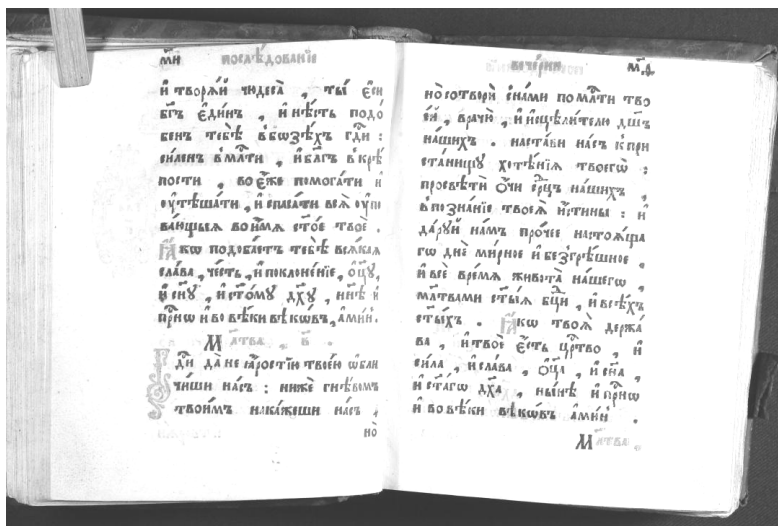 м҃и послѣдованїе
и҆ творѧ́й чюдеса̀ , ты́ є҆си
бг҃ъ є҆ди́нъ , и҆ нѣ́сть подо́
бенъ тебѣ̀ в бозѣ́хъ гдⷭ҇и :
си́ленъ в млⷭ҇ти , и҆ бла҃гъ в крѣ́
пости , во є҆́же помога́ти и҆
ѹ҆тѣша́ти , и҆ спаса́ти всѧ̀ ѹ҆по
ва́ющыѧ во и҆́мѧ ст҃о́е твоѐ .
Ꙗ҆́кѡ подоба́етъ тебѣ̀ всѧ́каѧ
сла́ва , че́сть , и҆ поклоне́нїе , ѻ҆ц҃у̀ ,
и҆ сн҃у , и҆ ст҃о́му дх҃у , нн҃ѣ и҆
прⷭ҇нѡ и҆ во вѣ́ки вѣкѡ́въ , а҆ми́нь .
Мл҃тва , в҃ .
Гдⷭ҇и да не ꙗ҆́ростїю твое́ю ѡ҆бли
чи́ши на́съ : нижѐ гнѣ́вомъ
твои́мъ нака́жеши на́съ ,
но̀
вече́рни м҃д
но̀ сотворѝ с на́ми по млⷭ҇ти тво
е́й , врачю̀ , и҆ и҆сцѣли́телю дш҃ъ
на́шихъ . наста́ви на́съ к при
ста́нищу хотѣ́нїѧ твоегѡ̀ :
просвѣтѝ ѻ҆́чи срⷣцъ на́шихъ ,
в позна́нїе твоеѧ̀ и҆́стины : и҆
да́руй на́мъ про́чее настоѧ́ща
гѡ днѐ ми́рное и҆ безгрѣ́шное ,
и҆ всѐ вре́мѧ живота̀ на́шегѡ ,
мл҃твами ст҃ы́ѧ бц҃ы , и҆ всѣ́хъ
ст҃ы́хъ . Ꙗ҆́кѡ твоѧ̀ держа́
ва , и҆ твоѐ є҆́сть црⷭ҇тво , и҆
си́ла , и҆ сла́ва , ѻ҆ц҃а̀ , и҆ сн҃а ,
и҆ ст҃а́гѡ дх҃а , ны́нѣ и҆ прⷭ҇нѡ
и҆ во вѣ́ки вѣкѡ́въ а҆ми́нь .
Мл҃тва ,